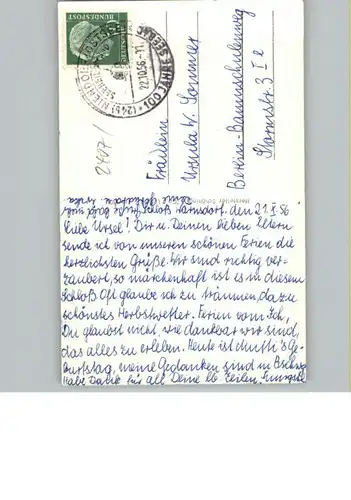 DEUTSCHE
BUNDESPOST
(24b) NIENDORF (OSTSEE)
22.10.56.-11
2407/
Fräulein
Ursula W. Sommer
Berlin-Baumschulenweg
Stormstr. 3 I e
Schloß Warnsdorf. den 21.X.56
Liebe Ursel! Dir u. Deinen lieben Eltern
sende ich von unseren schönen Ferien die
herzlichsten Grüße. Wir sind richtig ver-
zaubert, so märchenhaft ist es in diesem
Schloß. Oft glaube ich zu träumen, dazu
schönstes Herbstwetter. Ferien vom Ich,
Du glaubst nicht, wie dankbar wir sind,
das alles zu erleben. Heute ist Mutti's Ge-
burtstag, meine Gedanken sind in
Habe Dank für all Deine lb. Zeilen,